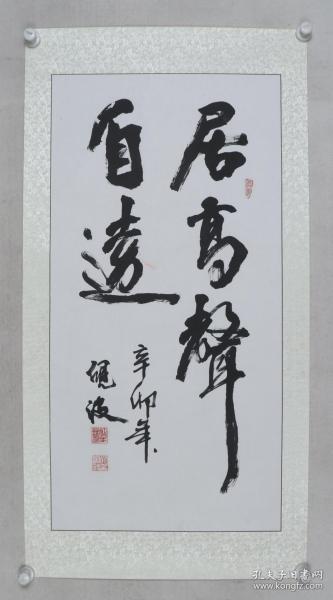 居高聲
自遠
辛卯年
砚波
孔夫子旧书网